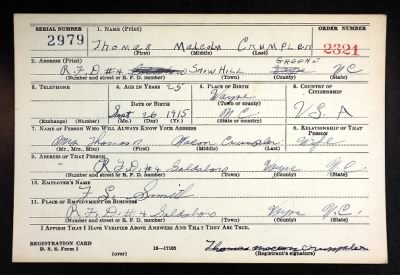 SERIAL NUMBER 1. NAME (Print) ORDER NUMBER
2979 Thomas Malcom Crumpler 2321
(First) (Middle) (Last)
2. ADDRESS (Print) Greene
R.F.D #4 Goldsboro Snow Hill Wayne N.C
(Number and street or R. F. D. number) (Town) (County) (State)
3. TELEPHONE 4. AGE IN YEARS 25 5. PLACE OF BIRTH 6. COUNTRY OF CITIZENSHIP
Wayne
DATE OF BIRTH (Town or county)
Sept 26 1915 N.C. U.S.A
(Exchange) (Number) (Mo.) (Day) (Yr.) (State or country)
7. NAME OF PERSON WHO WILL ALWAYS KNOW YOUR ADDRESS 8. RELATIONSHIP OF THAT PERSON
Mrs Thomas Crumpler Wife
(Mr., Mrs., Miss) (First) (Middle) (Last)
9. ADDRESS OF THAT PERSON
R.F.D. #4 Goldsboro Wayne N.C.
(Number and street or R. F. D. number) (Town) (County) (State)
10. EMPLOYER'S NAME
Smith
11. PLACE OF EMPLOYMENT OR BUSINESS
R.F.D. #4 Goldsboro Wayne N.C.
(Number and street or R. F. D. number) (Town) (County) (State)
I AFFIRM THAT I HAVE VERIFIED ABOVE ANSWERS AND THAT THEY ARE TRUE.
REGISTRATION CARD Thomas Crumpler
D. S. S. Form 1 16—17105 (Registrant's signature)
(over)